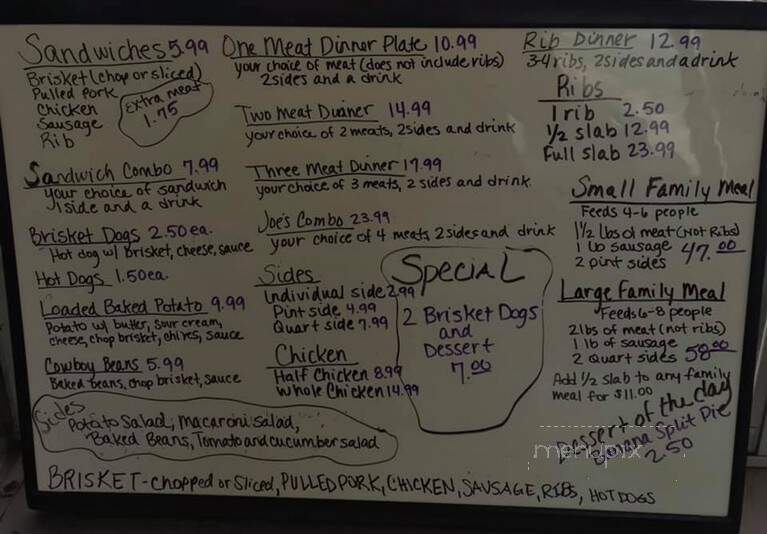 Sandwiches 5.99
Brisket (chop or sliced)
Pulled Pork
Chicken
Sausage
Rib
Extra meat
1.75
Sandwich Combo 7.99
your choice of sandwich
1 side and a drink
Brisket Dogs 2.50 ea.
Hot dog w/ brisket, cheese, sauce
Hot Dogs 1.50 ea.
Loaded Baked Potato 9.99
Potato w/ butter, sour cream,
cheese, chop brisket, chives, sauce
Cowboy Beans 5.99
Baked beans, chop brisket, sauce
One Meat Dinner Plate 10.99
your choice of meat (does not include ribs)
2 sides and a drink
Two Meat Dinner 14.99
your choice of 2 meats, 2 sides and drink
Three Meat Dinner 17.99
your choice of 3 meats, 2 sides and drink
Joe's Combo 23.99
your choice of 4 meats, 2 sides and drink
Sides
Individual side 2.99
Pint side 4.99
Quart side 7.99
Chicken
Half Chicken 8.99
Whole Chicken 14.99
Special
2 Brisket Dogs
and
Dessert
7.00
Rib Dinner 12.99
3-4 ribs, 2 sides and a drink
Ribs
1 rib 2.50
1/2 slab 12.99
Full slab 23.99
Small Family Meal
Feeds 4-6 people
1 1/2 lbs of meat (NOT Ribs)
1 lb sausage 47.00
2 pint sides
Large Family Meal
Feeds 6-8 people
2 lbs of meat (not ribs)
1 lb of sausage
2 Quart sides 58.00
Add 1/2 slab to any family
meal for $11.00
Dessert of the day
Banana Split Pie
2.50
menupix
Sides
Potato Salad, Macaroni salad,
Baked Beans, Tomato and cucumber salad
BRISKET - Chopped or Sliced, PULLED PORK, CHICKEN, SAUSAGE, RIBS, HOT DOGS